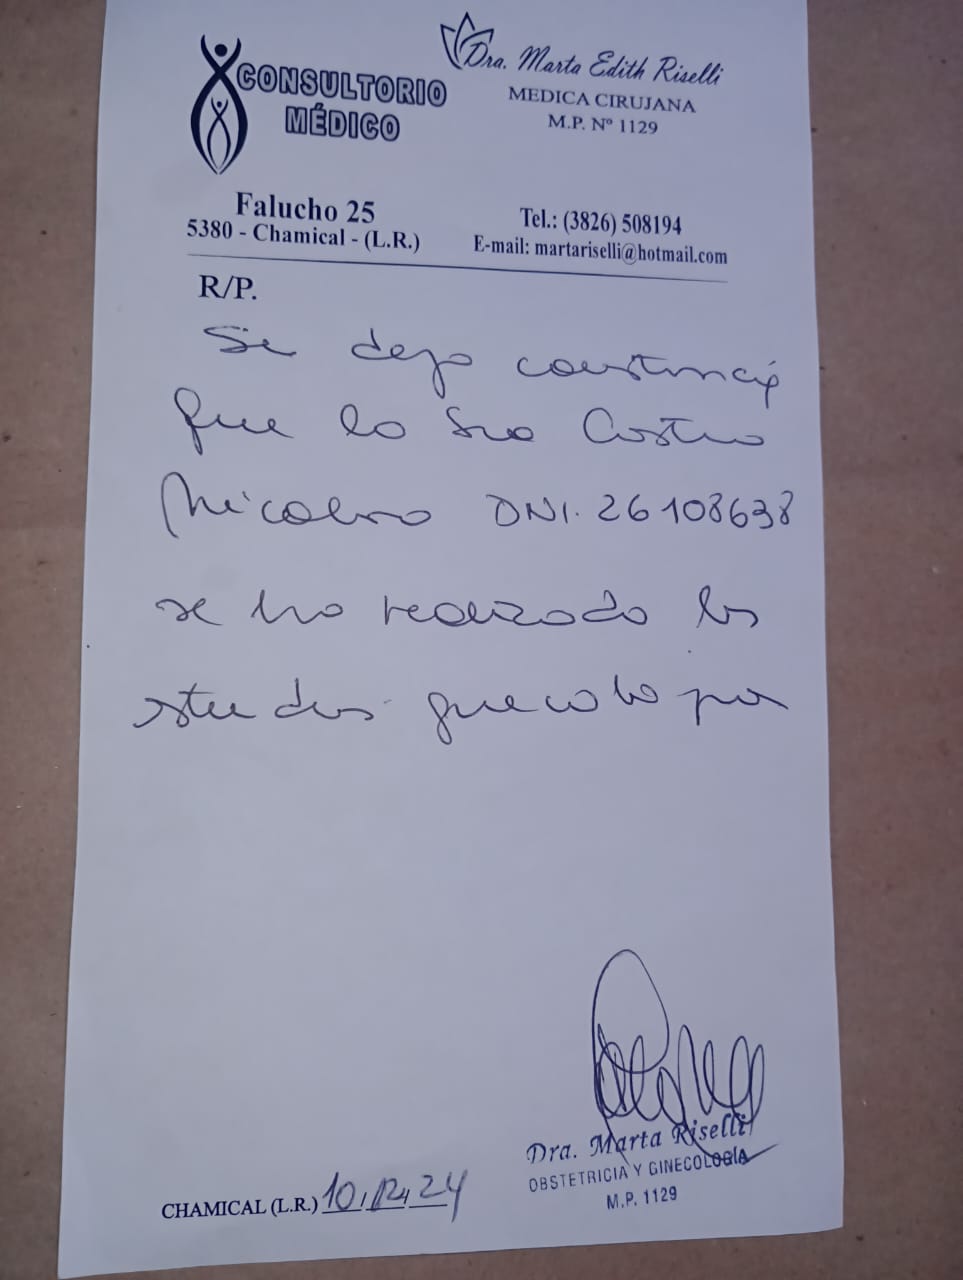 CONSULTORIO
MÉDICO
Dra. Marta Edith Riselli
MEDICA CIRUJANA
M.P. Nº 1129
Falucho 25
5380 - Chamical - (L.R.)
Tel.: (3826) 508194
E-mail: martariselli@hotmail.com
R/P.
Se dejo constancia
que la Sra Castro
DNI. 26108638
se ha realizado los
estudios
CHAMICAL (L.R.) 10/12/24
Dra. Marta Riselli
OBSTETRICIA Y GINECOLOGÍA
M.P. 1129